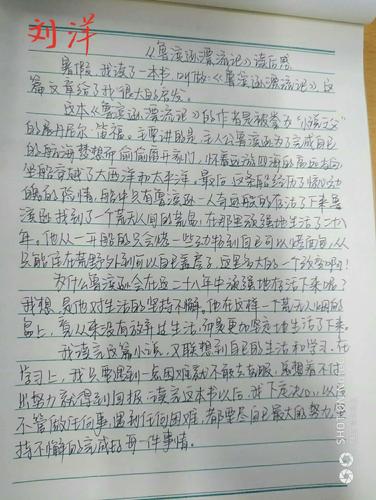 刘洋
《鲁滨逊漂流记》读后感
暑假,我读了一本书,叫做《鲁滨逊漂流记》,这
篇文章给了我很大的启发。
这本《鲁滨逊漂流记》的作者是被誉为“小说之父”
的丹尼尔·笛福。主要讲的是:主人公鲁滨逊为了完成自己
的航海梦想而偷偷离开家门,怀着远游四海的高远志向
坐船穿越了大西洋和太平洋。最后,这条船经历了惊心动
魄的险情,船中只有鲁滨逊一人奇迹般的存活了下来鲁
滨逊找到了一个荒无人间的荒岛,在那里顽强地生活了二十八
年。他从一开始的只会烧一些动物到自己可以烤面包,从
只能住在荒野外到可以自己盖房子,这是多大的一个改变啊!
为什么鲁滨逊会在这二十八年中顽强地存活下来呢?
我想,是他对生活的坚持不懈。他在这样一个荒无人烟的
岛上,看从来没有放弃过生活,而是更加坚定地生活了下来。
我读完这篇小说,又联想到自己的生活和学习。在
学习上,我只要遇到一点困难就不敢去克服,总想着不付
出努力就得到回报。读完这本书以后,我下定决心,以后
不管做任何事,遇到任何困难,都要尽自己最大的努力,坚
持不懈的完成好每一件事情。
SHOT ON